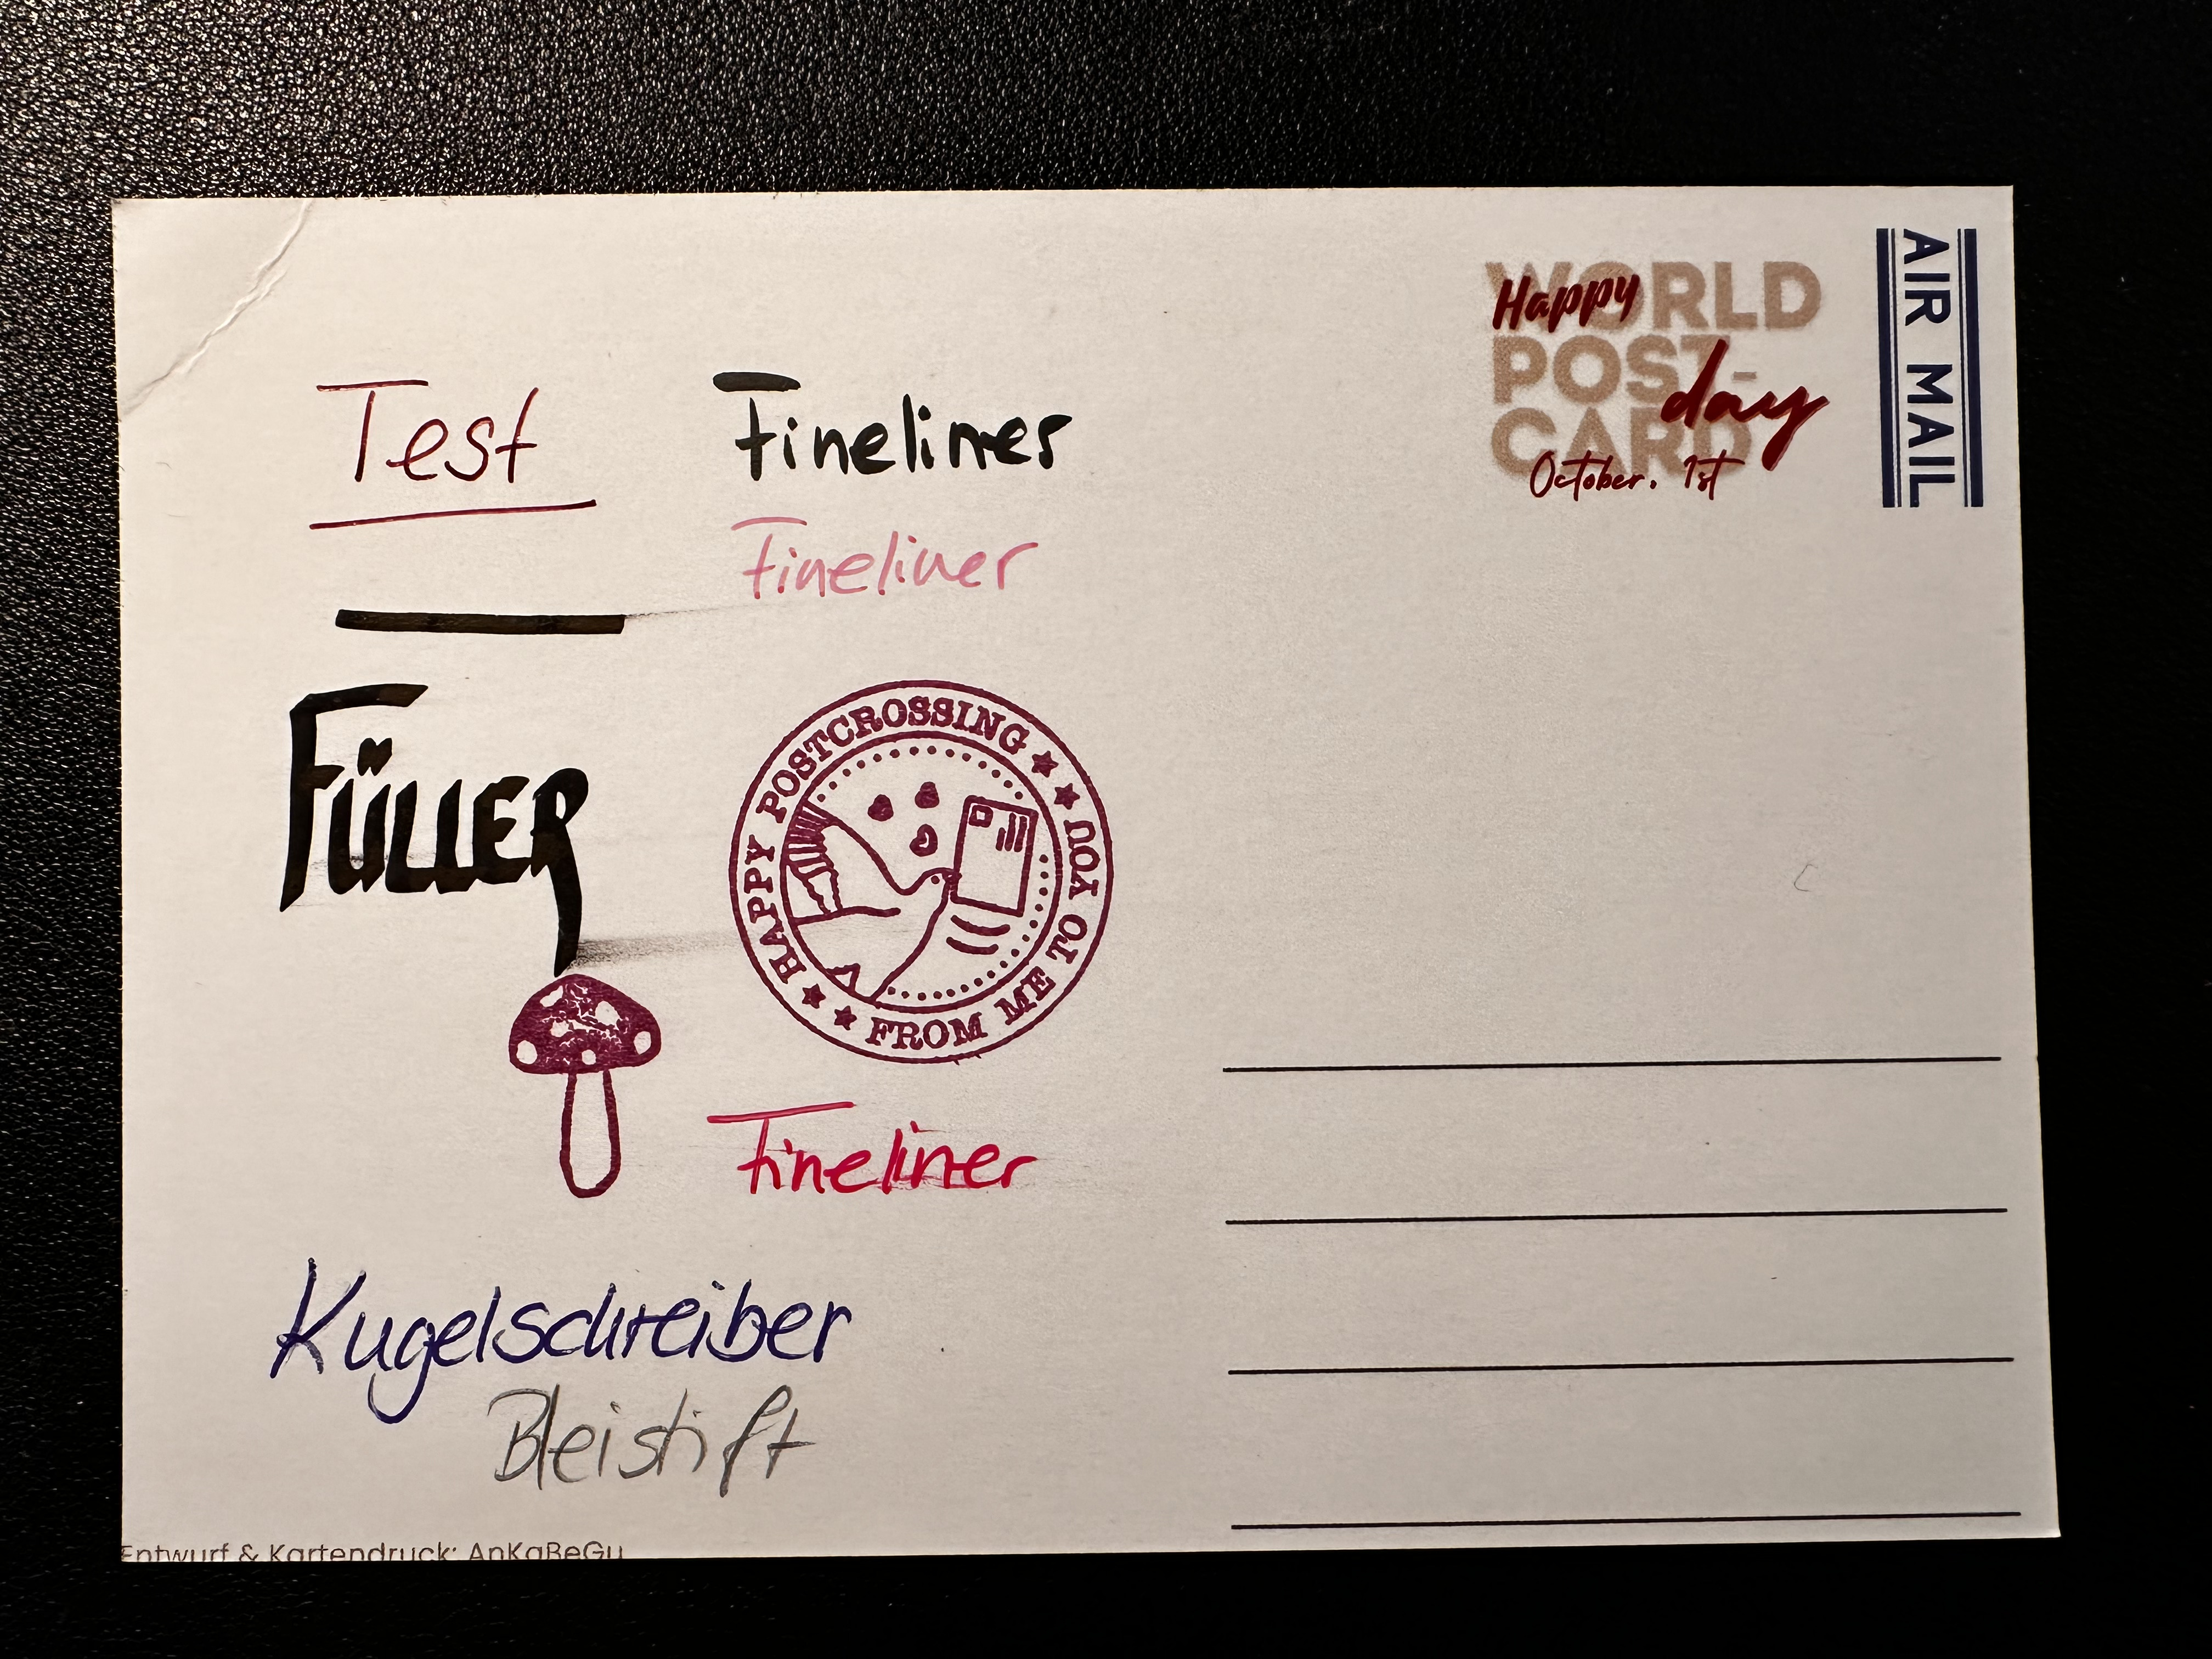 Test
Fineliner
Fineliner
FÜLLER
HAPPY POSTCROSSING
FROM ME TO YOU
Fineliner
Kugelschreiber
Bleistift
Entwurf & Kartendruck: AnKaBeGu
Happy
WORLD
POST-
day
CARD
October. 1st
AIR MAIL